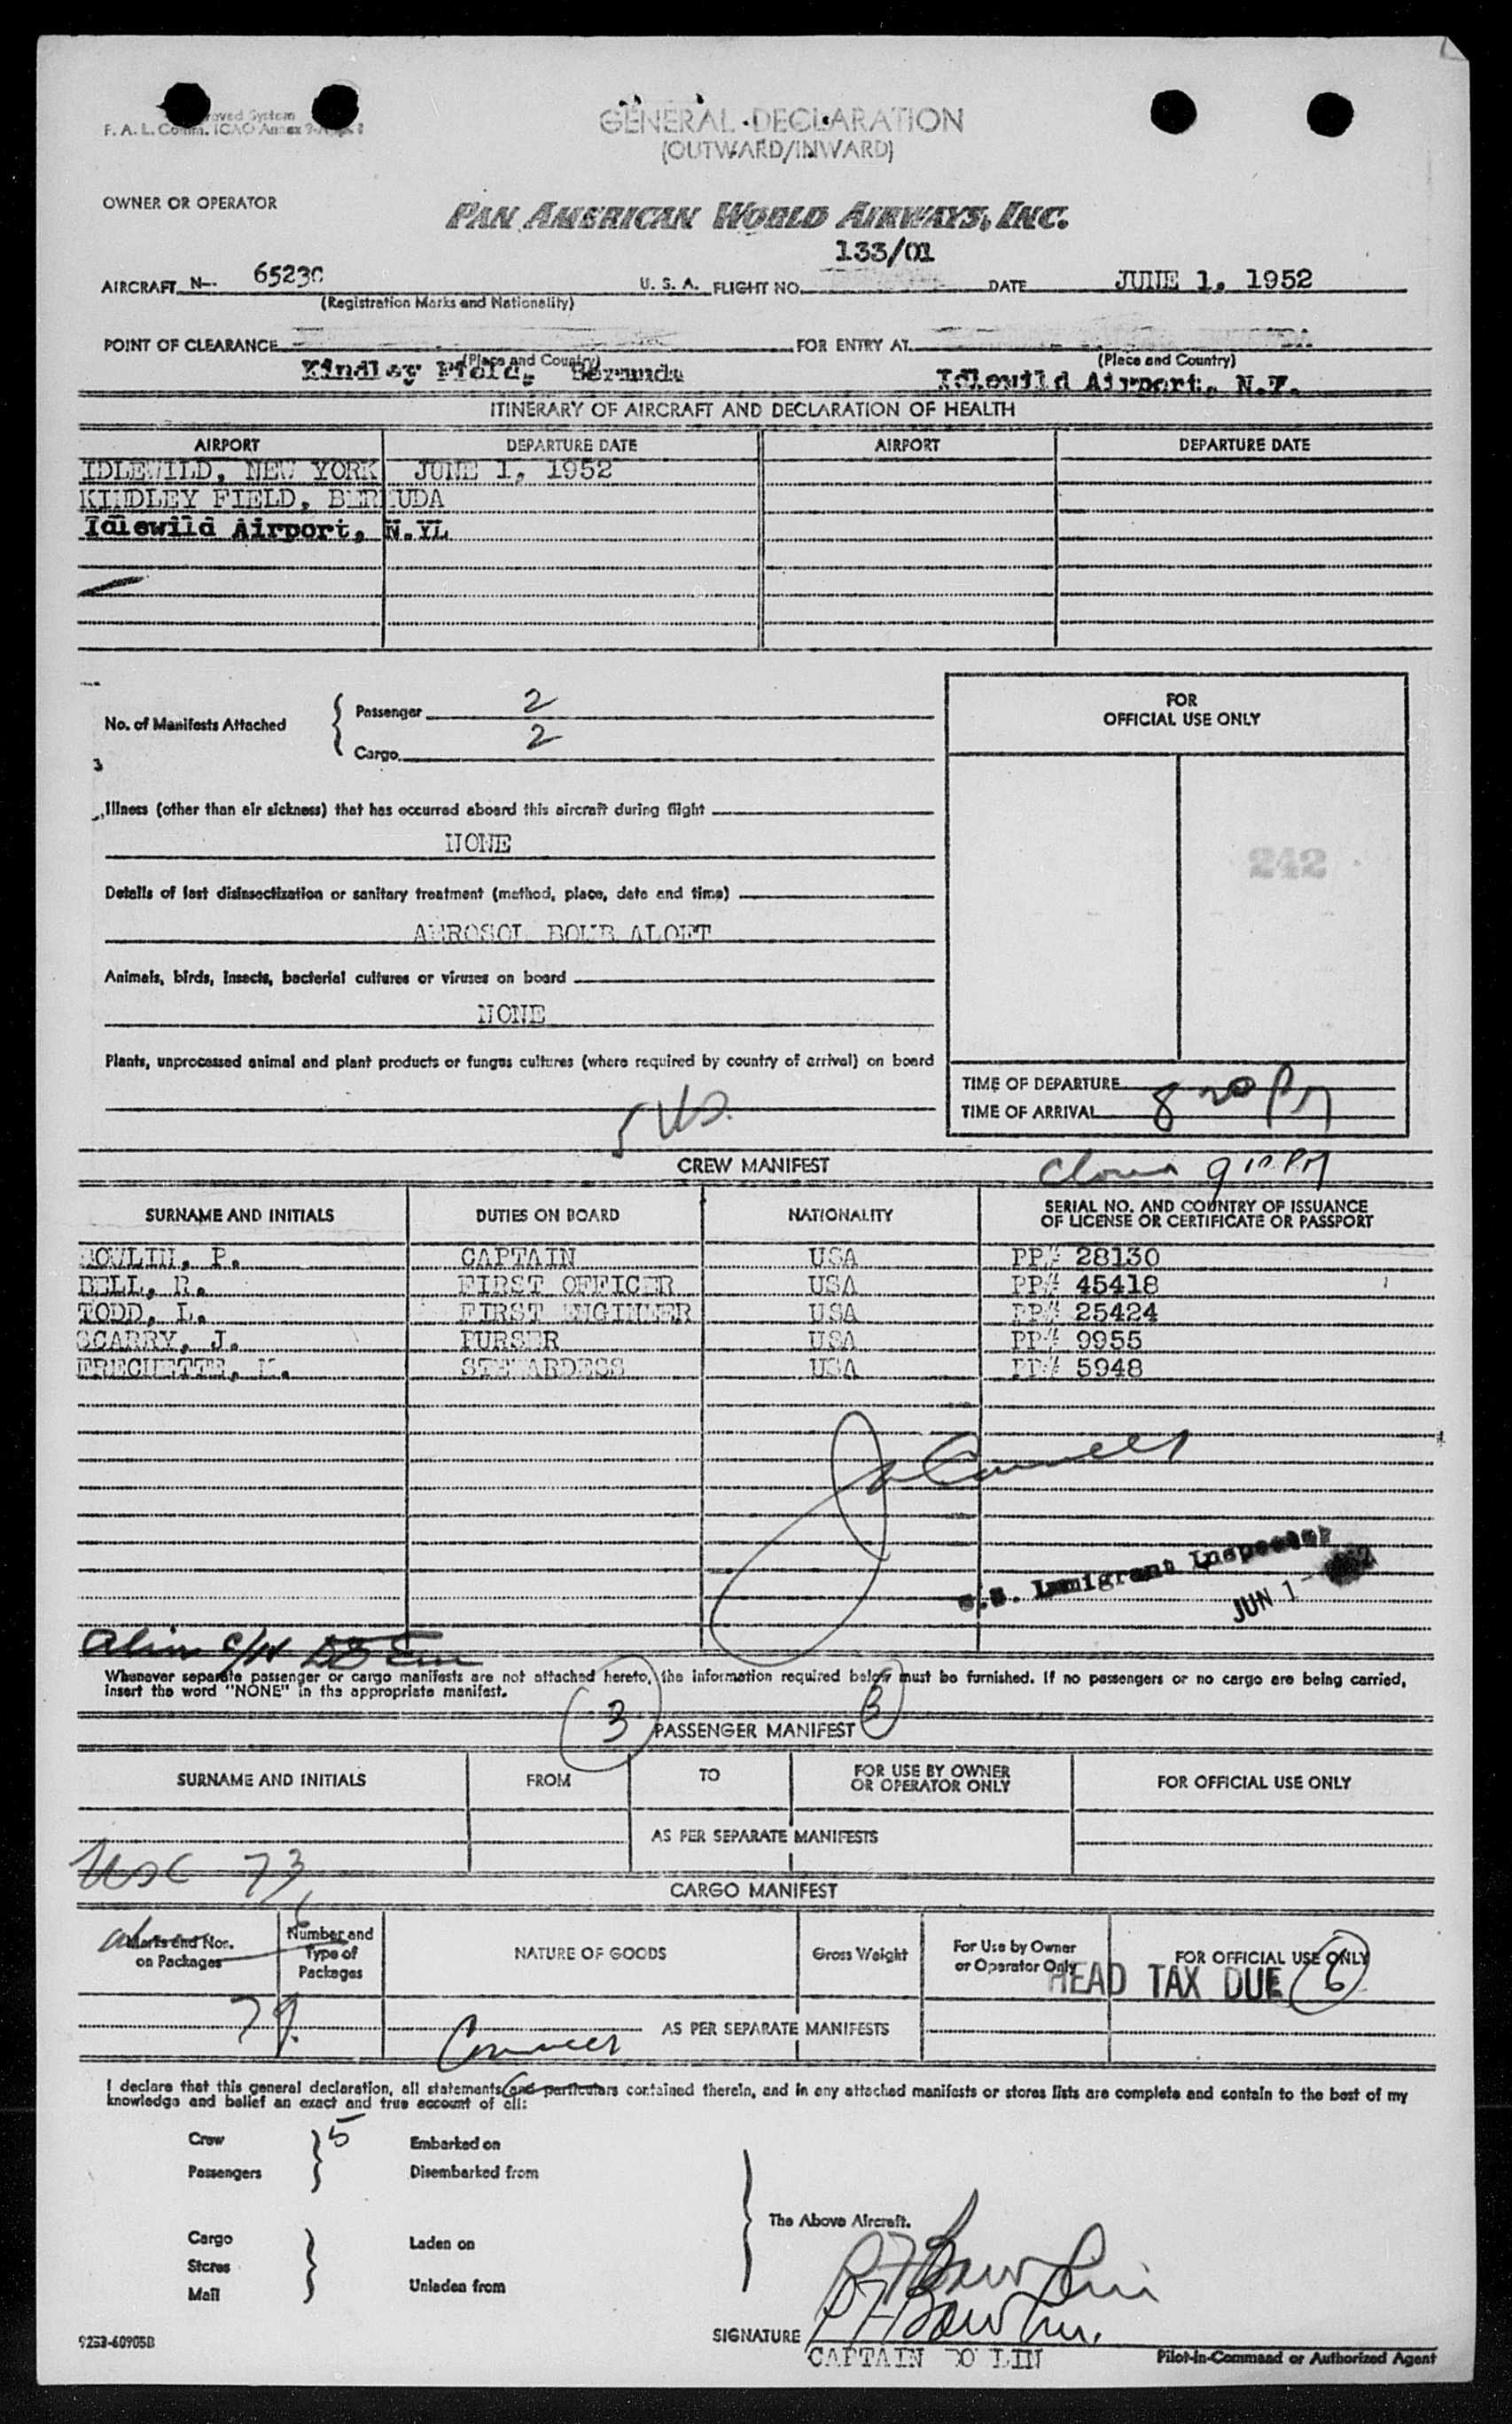 F. A. L. Comm. ICAO Annex 9-
GENERAL DECLARATION
(OUTWARD/INWARD)
OWNER OR OPERATOR
PAN AMERICAN WORLD AIRWAYS, INC.
133/01
AIRCRAFT N-. 65230 U. S. A. FLIGHT NO. DATE JUNE 1, 1952
(Registration Marks and Nationality)
POINT OF CLEARANCE FOR ENTRY AT
(Place and Country) (Place and Country)
Kindley Field, Bermuda Idlewild Airport, N.Y.
ITINERARY OF AIRCRAFT AND DECLARATION OF HEALTH
AIRPORT DEPARTURE DATE AIRPORT DEPARTURE DATE
IDLEWILD, NEW YORK JUNE 1, 1952
KINDLEY FIELD, BERMUDA
Idlewild Airport, N.YL
No. of Manifests Attached
Passenger 2
Cargo 2
FOR
OFFICIAL USE ONLY
Illness (other than air sickness) that has occurred aboard this aircraft during flight
NONE
242
Details of last disinsectization or sanitary treatment (method, place, date and time)
AEROSOL BOMB ALOFT
Animals, birds, insects, bacterial cultures or viruses on board
NONE
Plants, unprocessed animal and plant products or fungus cultures (where required by country of arrival) on board
TIME OF DEPARTURE
TIME OF ARRIVAL 8 20 PM
CREW MANIFEST
9 10 PM
SURNAME AND INITIALS DUTIES ON BOARD NATIONALITY SERIAL NO. AND COUNTRY OF ISSUANCE
OF LICENSE OR CERTIFICATE OR PASSPORT
BOWLIN, P. CAPTAIN USA PP# 28130
BELL, R. FIRST OFFICER USA PP# 45418
TODD, L. FIRST ENGINEER USA PP# 25424
SCARRY, J. PURSER USA PP# 9955
FRECHETTE, M. STEWARDESS USA PP# 5948
U.S. Immigrant Inspector
JUN 1 - 1952
Whenever separate passenger or cargo manifests are not attached hereto, the information required below must be furnished. If no passengers or no cargo are being carried,
insert the word "NONE" in the appropriate manifest.
3 PASSENGER MANIFEST 3
SURNAME AND INITIALS FROM TO FOR USE BY OWNER
OR OPERATOR ONLY FOR OFFICIAL USE ONLY
AS PER SEPARATE MANIFESTS
USC 73
CARGO MANIFEST
Marks and Nos.
on Packages
Number and
Type of
Packages
NATURE OF GOODS
Gross Weight
For Use by Owner
or Operator Only
FOR OFFICIAL USE ONLY
HEAD TAX DUE 6
79
AS PER SEPARATE MANIFESTS
I declare that this general declaration, all statements and particulars contained therein, and in any attached manifests or stores lists are complete and contain to the best of my
knowledge and belief an exact and true account of all:
Crew 5 Embarked on
Passengers Disembarked from
The Above Aircraft.
Cargo Laden on
Stores
Mail Unladen from
P F Bowlin
P F Bowlin.
SIGNATURE
CAPTAIN BOWLIN
Pilot-in-Command or Authorized Agent
9253-60905B